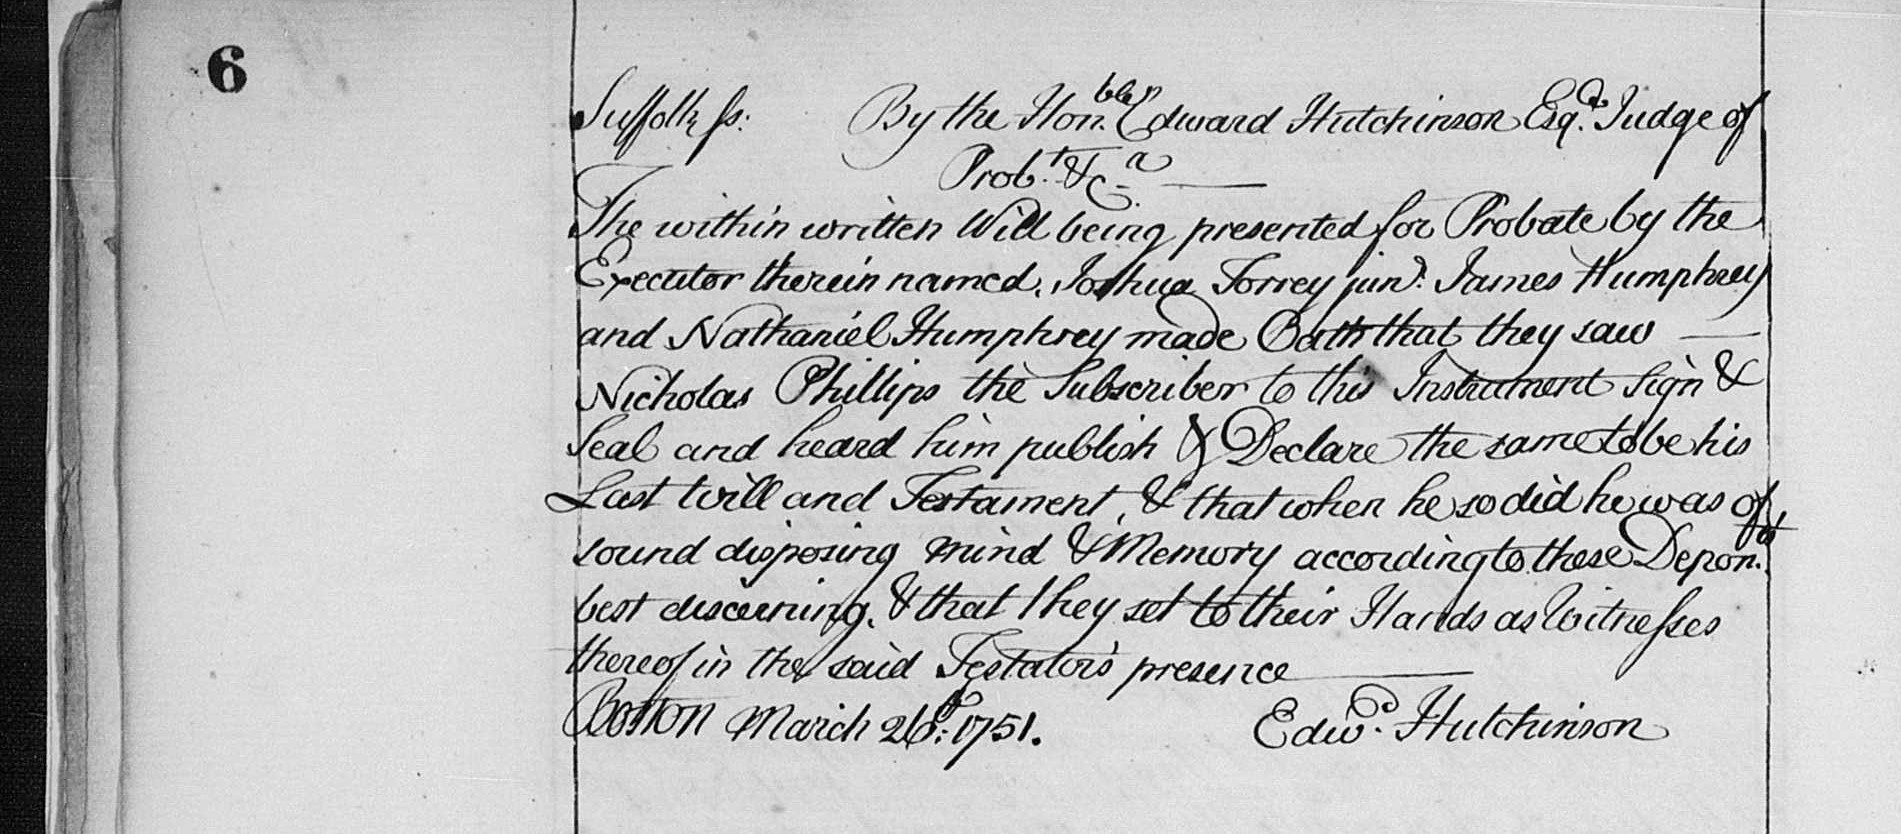 6
Suffolk ss: By the Hon.ble Edward Hutchinson Esq.r Judge of
Prob.t &c.a
The within written Will being presented for Probate by the
Executor therein named, Joshua Torrey jun.r James Humphrey
and Nathaniel Humphrey made Oath that they saw
Nicholas Phillips the Subscriber to this Instrument Sign &
Seal and heard him publish & Declare the same to be his
Last will and Testament, & that when he so did he was of
sound disposing mind & Memory according to these Depon.ts
best discerning, & that they set to their Hands as Witnesses
thereof in the said Testator's presence
Boston March 26th: 1751. Edw.d Hutchinson